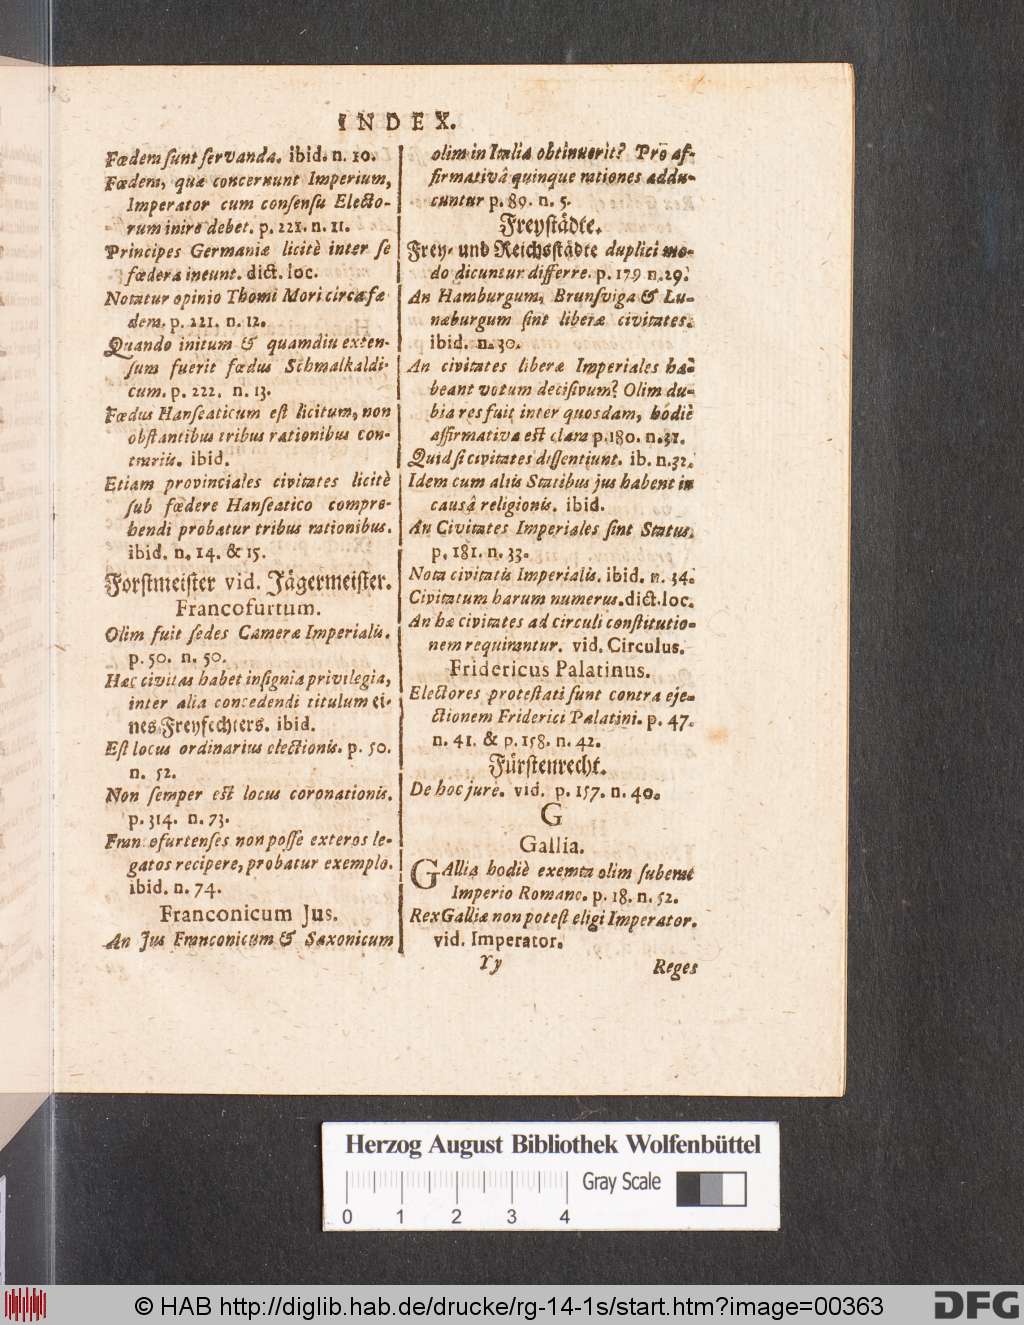 INDEX.
Fœdem sunt servanda. ibid. n. 10.
Fœdera, quæ concernunt Imperium,
Imperator cum consensu Electo-
rum inire debet. p. 221. n. 11.
Principes Germaniæ licitè inter se
fœdera ineunt. dict. loc.
Notatur opinio Thomi Mori circa fæ
dera. p. 221. n. 12.
Quando initum & quamdiu exten-
sum fuerit fœdus Schmalkaldi-
cum. p. 222. n. 13.
Fœdus Hanseaticum est licitum, non
obstantibus tribus rationibus con-
trariis. ibid.
Etiam provinciales civitates licitè
sub fœdere Hanseatico compre-
hendi probatur tribus rationibus.
ibid. n. 14. & 15.
Forstmeister vid. Jägermeister.
Francofurtum.
Olim fuit sedes Cameræ Imperialis.
p. 50. n. 50.
Hæc civitas habet insignia privilegia,
inter alia concedendi titulum ei-
nes Freyfechters. ibid.
Est locus ordinarius electionis. p. 50.
n. 52.
Non semper est locus coronationis.
p. 314. n. 73.
Francofurtenses non posse exteros le-
gatos recipere, probatur exemplo.
ibid. n. 74.
Franconicum Jus.
An Jus Franconicum & Saxonicum
olim in Italia obtinuerit? Pro af-
firmativâ quinque rationes addu-
cuntur p. 89. n. 5.
Freystädte.
Frey- und Reichsstädte duplici mo-
do dicuntur differre. p. 179 n. 29.
An Hamburgum, Brunsviga & Lu-
næburgum sint liberæ civitates.
ibid. n. 30.
An civitates liberæ Imperiales ha-
beant votum decisivum? Olim du-
bia res fuit inter quosdam, hodiè
affirmativa est clara p. 180. n. 31.
Quid si civitates dissentiunt. ib. n. 32.
Idem cum aliis Statibus jus habent in
causâ religionis. ibid.
An Civitates Imperiales sint Status.
p. 181. n. 33.
Nota civitatis Imperialis. ibid. n. 34.
Civitatum harum numerus. dict. loc.
An hæ civitates ad circuli constitutio-
nem requirantur. vid. Circulus.
Fridericus Palatinus.
Electores protestati sunt contra eje-
ctionem Friderici Palatini. p. 47.
n. 41. & p. 158. n. 42.
Fürstenrecht.
De hoc jure. vid. p. 157. n. 40.
G
Gallia.
GAllia hodiè exemta olim suberat
Imperio Romano. p. 18. n. 52.
Rex Galliæ non potest eligi Imperator.
vid. Imperator.
Yy Reges
Herzog August Bibliothek Wolfenbüttel
Gray Scale
0 1 2 3 4
© HAB http://diglib.hab.de/drucke/rg-14-1s/start.htm?image=00363 DFG